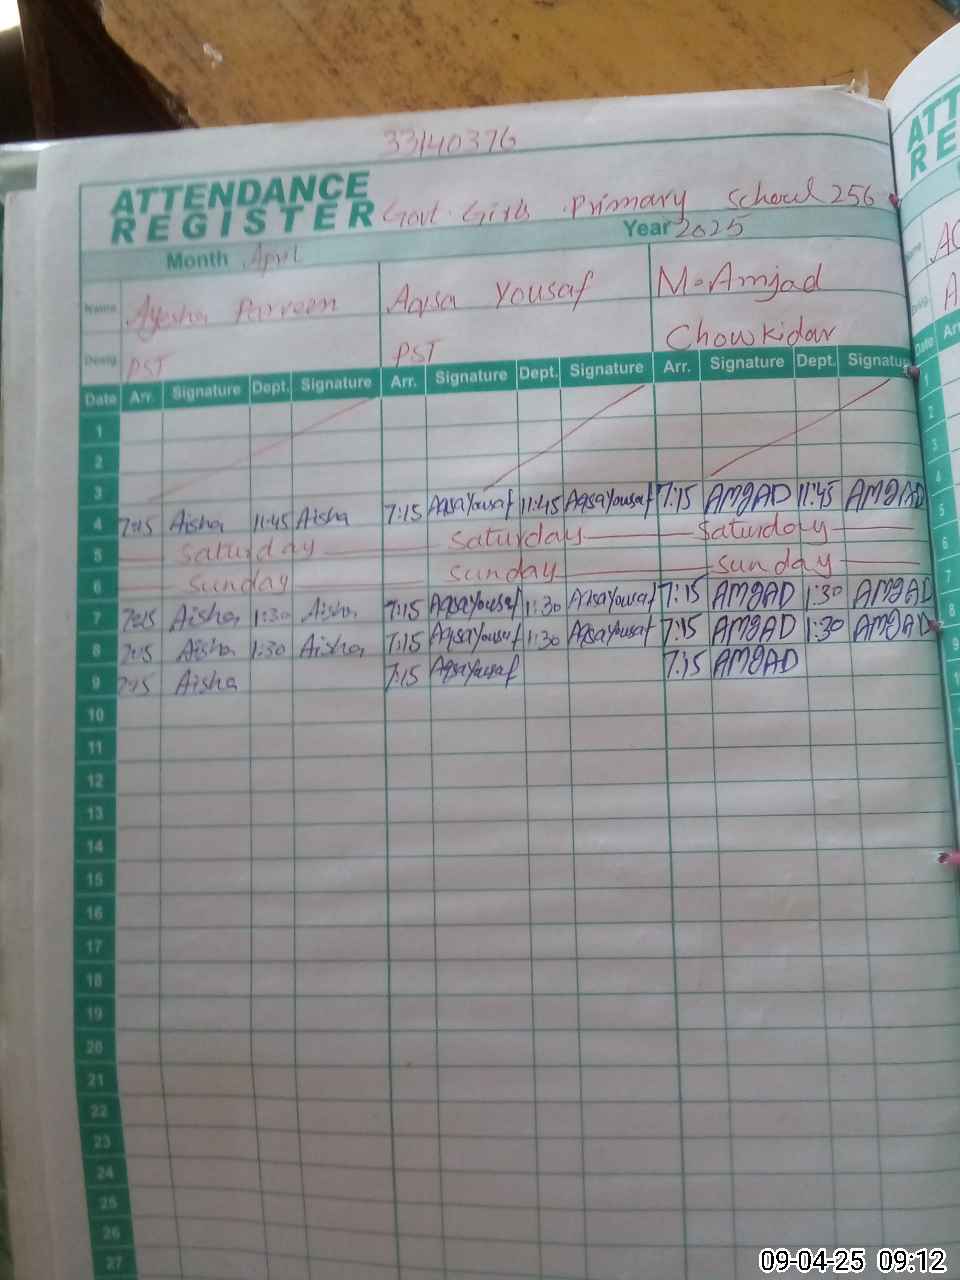 33140376
ATTENDANCE
REGISTER Govt. Girls Primary School 256
Month April Year 2025
Name Ayesha Parveen Aqsa Yousaf M. Amjad
Desig. PST PST Chowkidar
Date Arr. Signature Dept. Signature Arr. Signature Dept. Signature Arr. Signature Dept. Signature
1
2
3
4 7:15 Aisha 11:45 Aisha 7:15 AqsaYousaf 11:45 AqsaYousaf 7:15 AMGAD 11:45 AMGAD
5 Saturday Saturday Saturday
6 Sunday Sunday Sunday
7 7:15 Aisha 1:30 Aisha 7:15 AqsaYousaf 1:30 AqsaYousaf 7:15 AMGAD 1:30 AMGAD
8 7:15 Aisha 1:30 Aisha 7:15 AqsaYousaf 1:30 AqsaYousaf 7:15 AMGAD 1:30 AMGAD
9 7:15 Aisha 7:15 AqsaYousaf 7:15 AMGAD
10
11
12
13
14
15
16
17
18
19
20
21
22
23
24
25
26
27
ATT
RE
Date
1
2
3
4
5
6
7
8
9
09-04-25 09:12